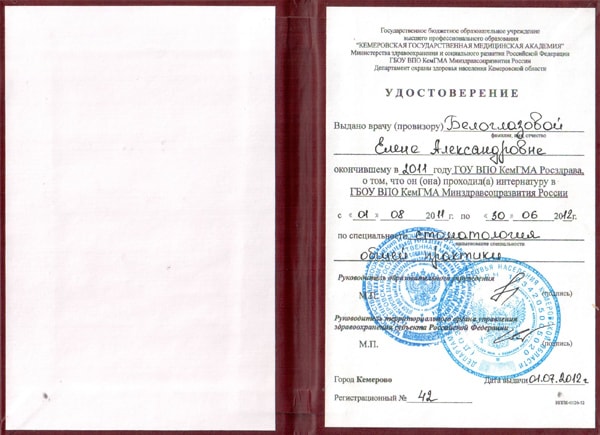 Государственное бюджетное образовательное учреждение
высшего профессионального образования
"КЕМЕРОВСКАЯ ГОСУДАРСТВЕННАЯ МЕДИЦИНСКАЯ АКАДЕМИЯ"
Министерства здравоохранения и социального развития Российской Федерации
ГБОУ ВПО КемГМА Минздравсоцразвития России
Департамент охраны здоровья населения Кемеровской области
УДОСТОВЕРЕНИЕ
Выдано врачу (провизору) Белоглазовой
фамилия, имя, отчество
Елене Александровне
окончившему в 2011 году ГОУ ВПО КемГМА Росздрава,
о том, что он (она) проходил(а) интернатуру в
ГБОУ ВПО КемГМА Минздравсоцразвития России
с « 01 » 08 2011 г. по « 30 » 06 2012г.
по специальности стоматология
наименование специальности
общей практики
Руководитель образовательного учреждения
М.П. (подпись)
Руководитель территориального органа управления
здравоохранения субъекта Российской Федерации
М.П. (подпись)
Город Кемерово Дата выдачи 01.07.2012г
Регистрационный № 42